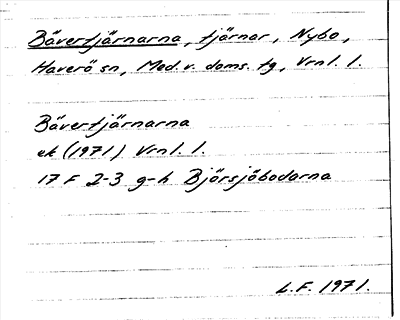 Bävertjärnarna, tjärnar, Nybo,
Haverö sn, Med. v. doms. tg, Vrnl. l.
Bävertjärnarna
ek (1971) Vrnl. l.
17 F 2-3 g-h Björsjöbodarna
L.F. 1971.